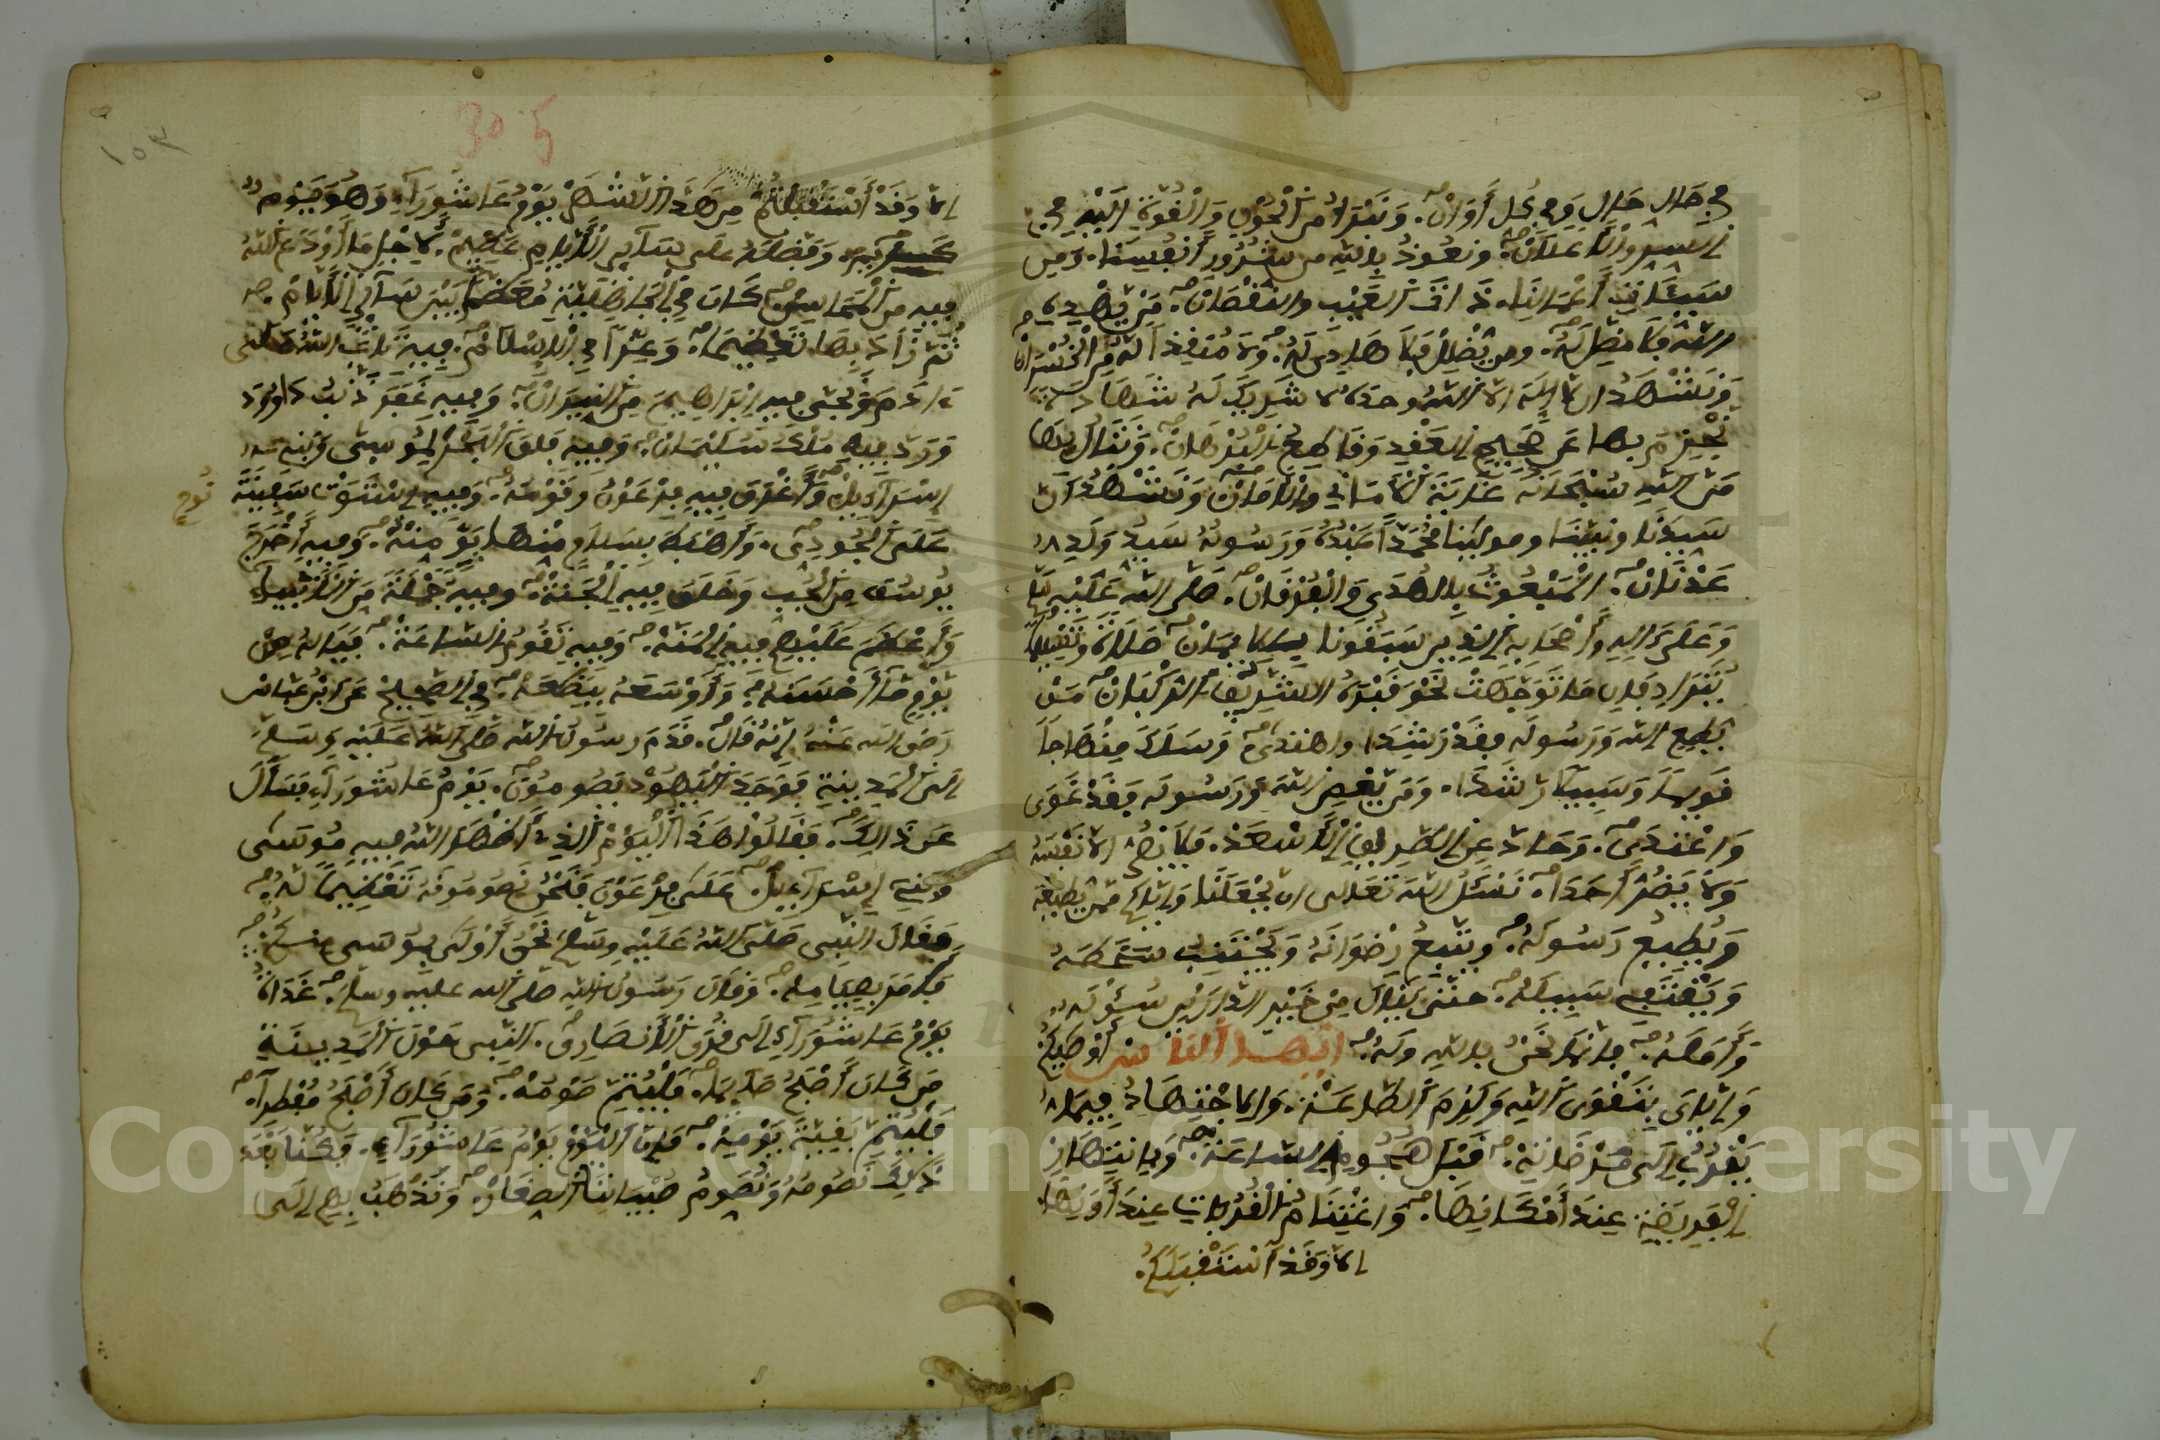 في حال حال وفي كل أوان. ونبرأ من الحول والقوة إليه في
السر والاعلان. ونعوذ بالله من شرور أنفسنا. ومن
سيئات أعمالنا. ذات العيب والنقصان. من يهديه
الله فلا مضل له. ومن يضلل فلا هادي له. ولا منقذا له من الخسران
ونشهد ان لا إله الا الله وحده لا شريك له شهادة
نجزم بها عن صحيح العقد وقاطع البرهان. وننال بها
من الله سبحانه غاية الأماني والأمان ونشهد أن
سيدنا ونبينا ومولينا محمدا عبده ورسوله سيد ولد
عدنان. المبعوث بالهدى والفرقان. صلى الله عليه
وعلى اله وأصحابه الذين سبقونا بالايمان صلاة
ما توجهت نحو قبره الشريف الركبان من
يطع الله ورسوله فقد رشدا واهتدى وسلك منهاجا
قويما وسبيلا رشدا. ومن يعص الله ورسوله فقد غوى
واعتدى. وحاد عن الطريق الأسعد. فلا يضر الا نفسه
ولا يضر أحدا. نسئل الله تعالى ان يجعلنا واياكم ممن يطيعه
ويطيع رسوله. ويتبع رضوانه ويجتنب سخطه
ويقتفي سبيله. حتى ينال من خير الدارين سؤله
وأمله. فإنما نحن بالله وله. أيها الناس أوصيكم
واياي بتقوى الله ولزوم الطاعة. والاجتهاد فيما
يقرب الى مرضاته. قبل هجوم الساعة. وبانتهاز
الفريضة عند أمكانها. واغتنام القربات عند أوانها
الا وقد استقبلكم.
الا وقد أستقبلكم من هذا الشهر يوم عاشوراء وهو يوم
كبير وفضله على سائر الأيام عظيم. لاجل ما أودع الله
فيه من المحاسن كان في الجاهلية معظما بين سائر الأيام.
ثم زاد بها تعظيما. وعزا في الاسلام. فيه تاب الله على
ءادم ونجى فيه إبراهيم من النيران. وفيه غفر ذنب داوود
ورد فيه ملك سليمان. وفيه فلق البحر لموسى وبني
إسرائيل وأغرق فيه فرعون وقومه. وفيه استوت سفينة
نوح
على الجودي. وأهبط بسلام منها يومئذ. وفيه أخرج
يوسف من الجب وخلق فيه الجنة. وفيه جملة من الأنبياء
وأعظم عليهم فيه المنة. وفيه تقوم الساعة. فياله من
يوم ما أحسنه. وأوسعه. في الصحيح عن ابن عباس
رضي الله عنه إنه قال. قدم رسول الله صلى الله عليه وسلم
الى المدينة فوجد اليهود يصومون. يوم عاشوراء فسأل
عن ذالك. فقالوا هذا اليوم الذي أظهر الله فيه موسى
وبني إسرائيل. على فرعون فنحن نصومونه تعظيما له.
فقال النبي صلى الله عليه وسلم نحن أولى بموسى منكم.
فأمر بصيامه. وقال رسول الله صلى الله عليه وسلم. غداة
يوم عاشوراء الى قرى الأنصار. التي حول المدينة
من كان أصبح صايما. فليتم صومه. ومن كان أصبح مفطرا.
فليتم بقية يومه. فان اليوم يوم عاشوراء. وكنا بعد
ذلك نصومه ونصوم صبياننا الصغار. ونذهب بهم إلى
305
١٠٣
Copyright © King Saud University